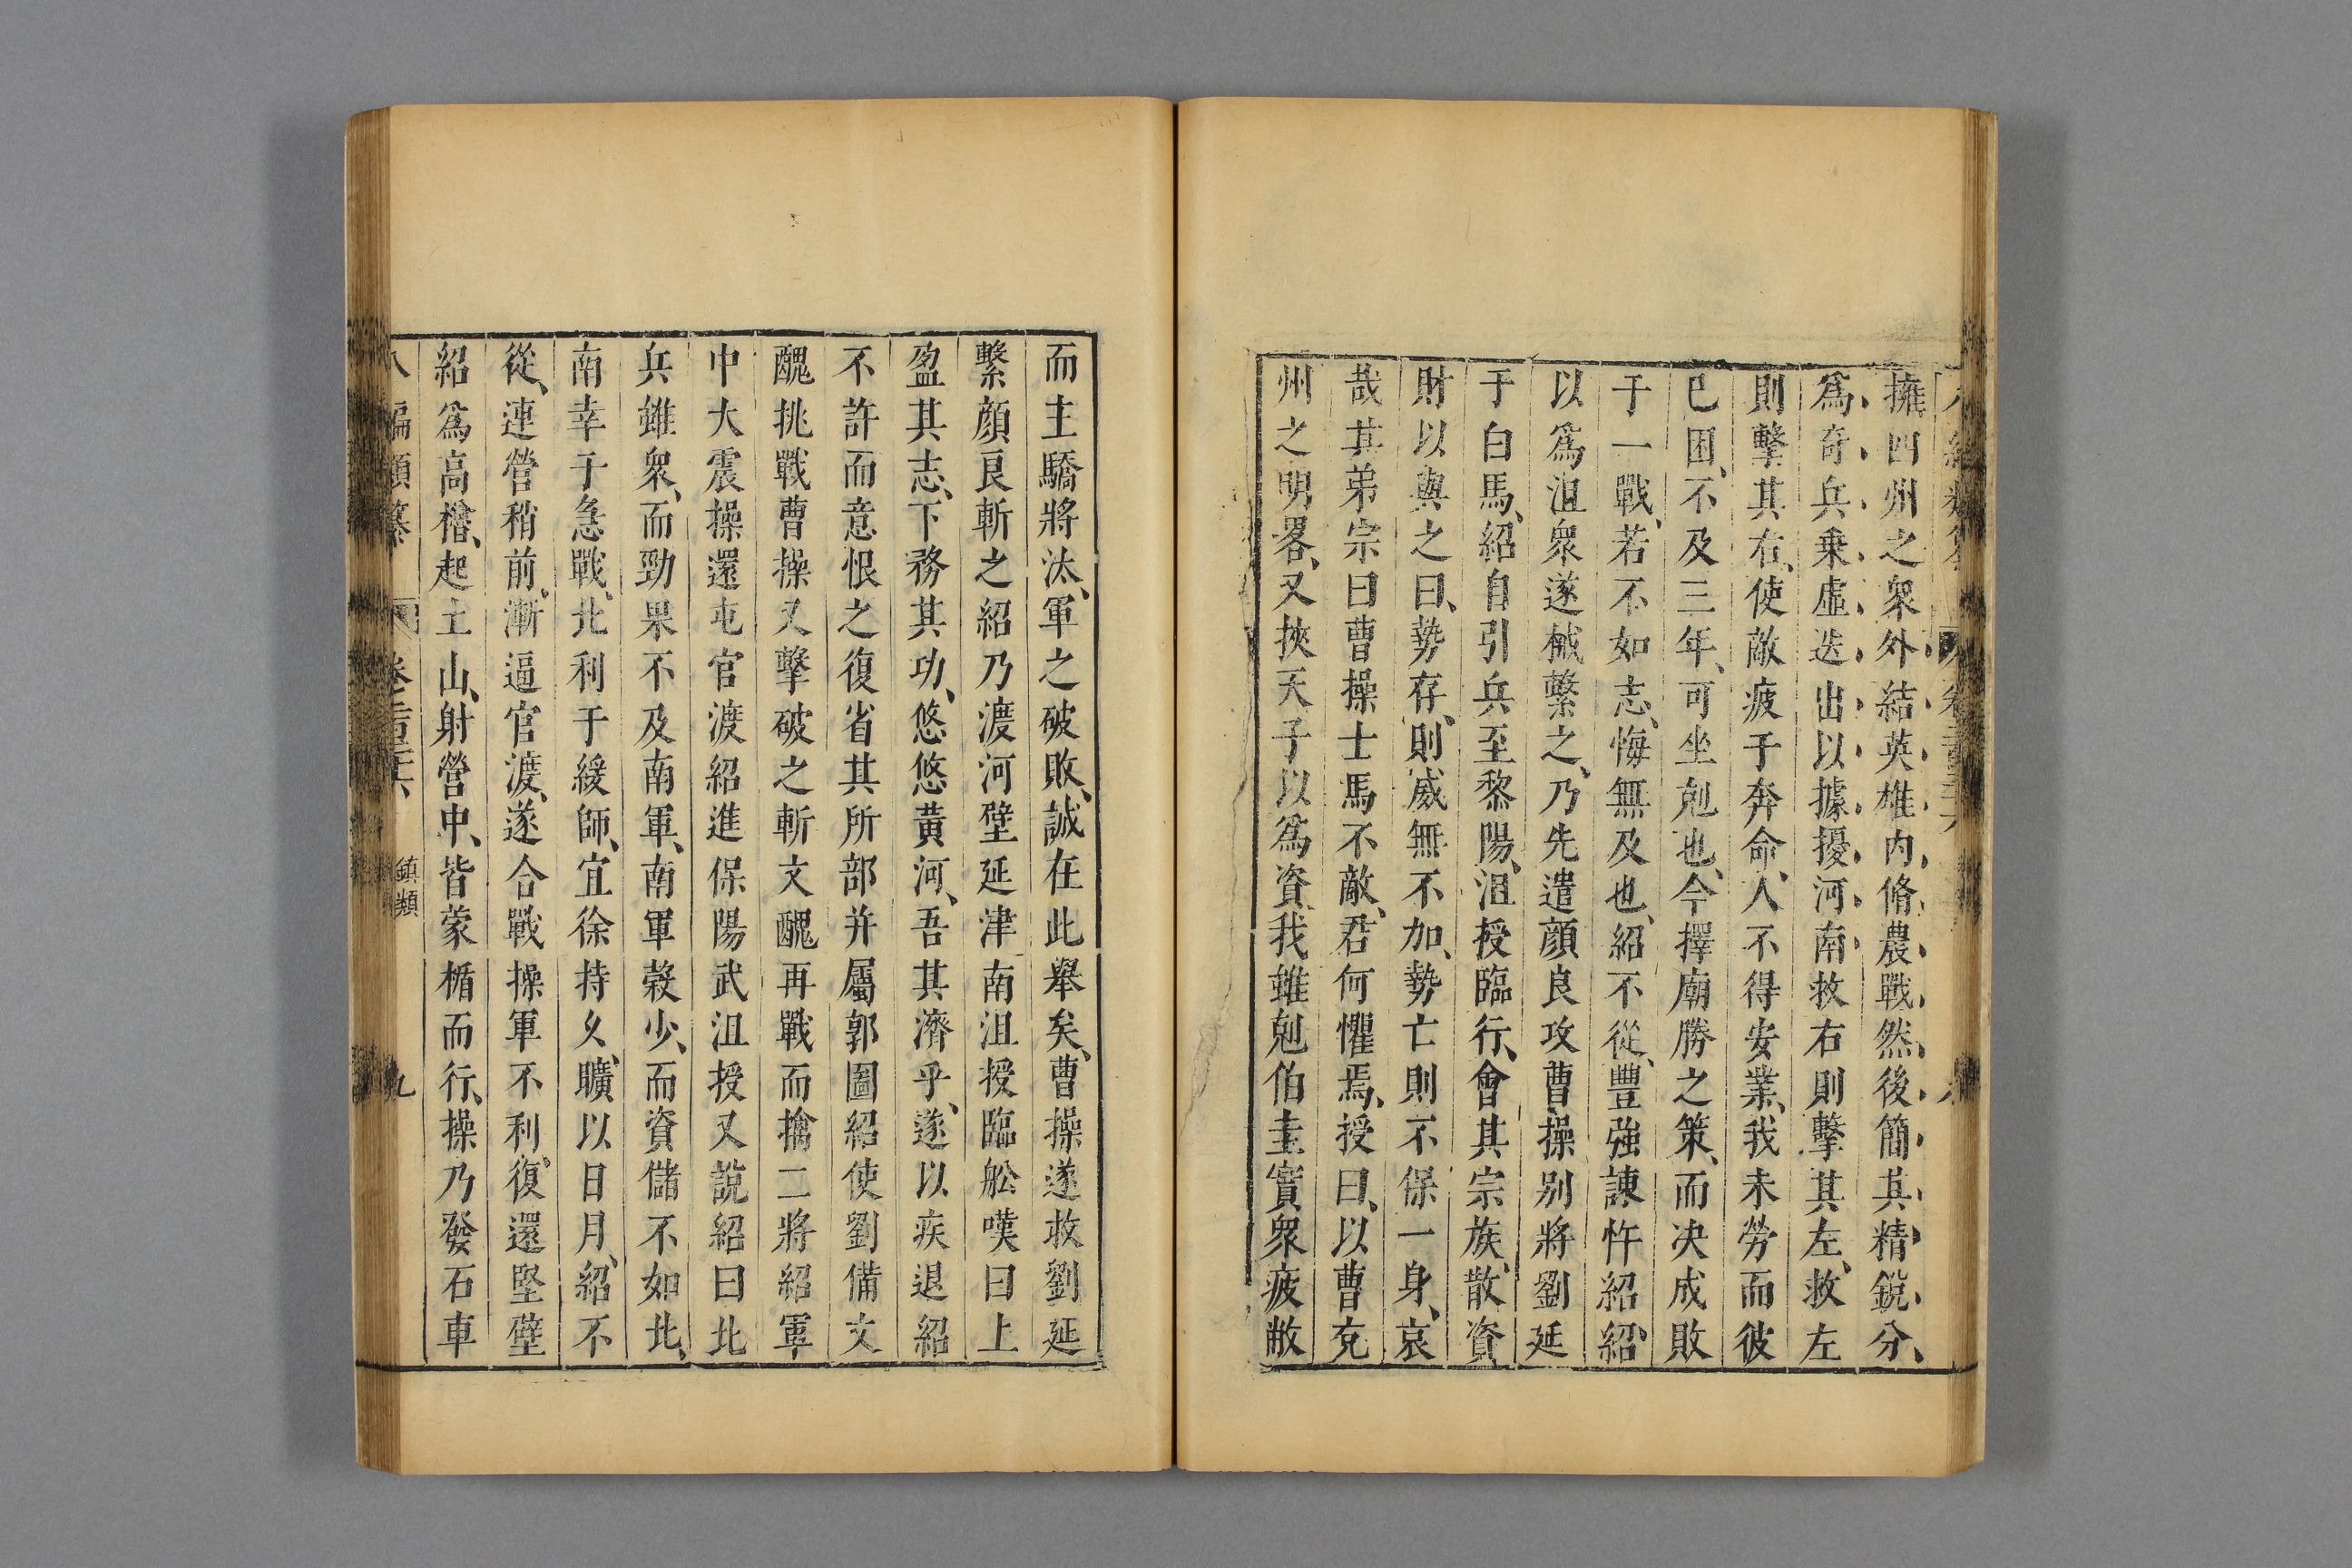 擁四州之衆外結英雄内脩農戰然後簡其精銳分、
爲奇兵乗虛迭出以據擾河南救右則擊其左、救左
則擊其右、使敵疲于奔命、人不得安業、我未勞而彼
已困、不及三年、可坐剋也、今擇廟勝之策、而决成敗
于一戰、若不如志、悔無及也、紹不從、豐強諫忤紹、紹
以爲沮衆遂械繫之、乃先遣顔良攻曹操别將劉延
于白馬、紹自引兵至黎陽、沮授臨行、會其宗族、散資
財以與之曰、勢存、則威無不加、勢亡則不保一身、哀
哉其弟宗曰曹操士馬不敵、君何懼焉、授曰、以曹兖
州之明畧、又挾天子以爲資我雖剋伯圭實衆疲敝
而主驕將汰、軍之破敗、誠在此舉矣、曹操遂救劉延
繫顔良斬之紹乃渡河壁延津南沮授臨舩嘆曰上
盈其志、下務其功、悠悠黄河、吾其濟乎、遂以疾退紹
不許而意恨之復省其所部并屬郭圖紹使劉備文
醜挑戰曹操又擊破之斬文醜再戰而擒二將紹軍
中大震操還屯官渡紹進保陽武沮授又說紹曰北
兵雖衆、而勁果不及南軍、南軍糓少、而資儲不如北、
南幸于急戰、北利于緩師、宜徐持久、曠以日月、紹不
從、連營稍前、漸逼官渡、遂合戰操軍不利、復還堅壁
紹爲高櫓、起土山、射營中、皆蒙楯而行、操乃發石車
八編類纂 卷二百三十六 鎮類 九